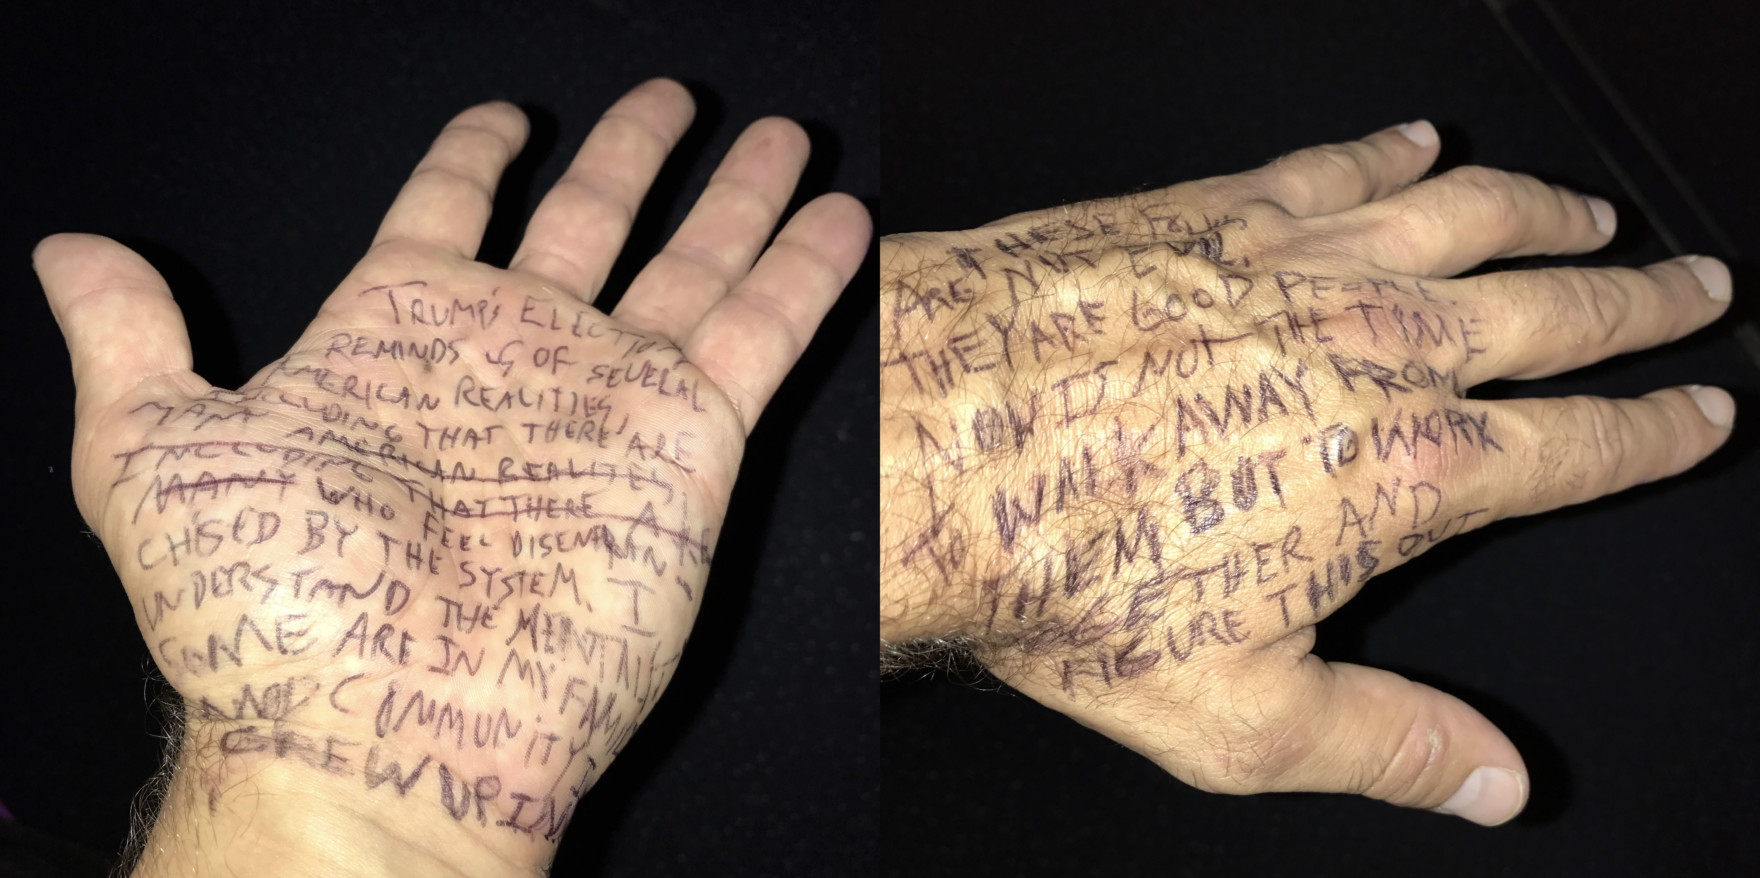 TRUMP'S ELECTION
REMINDS US OF SEVERAL
AMERICAN REALITIES,
INCLUDING THAT THERE ARE
MANY AMERICAN REALITIES
INCLUDING THAT THERE ARE
MANY WHO FEEL DISENFRAN-
CHISED BY THE SYSTEM. I
UNDERSTAND THE MENTALITY
SOME ARE IN MY FAMILY
AND COMMUNITY I
GREW UP IN
THESE FOLKS
ARE NOT EVIL.
THEY ARE GOOD PEOPLE.
NOW IS NOT THE TIME
TO WALK AWAY FROM
THEM BUT TO WORK
TOGETHER AND
FIGURE THIS OUT